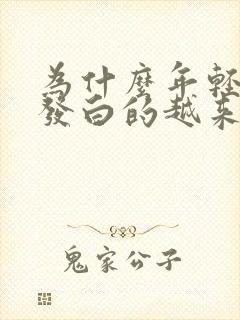 為什麼年輕
發白的越來
鬼家公子